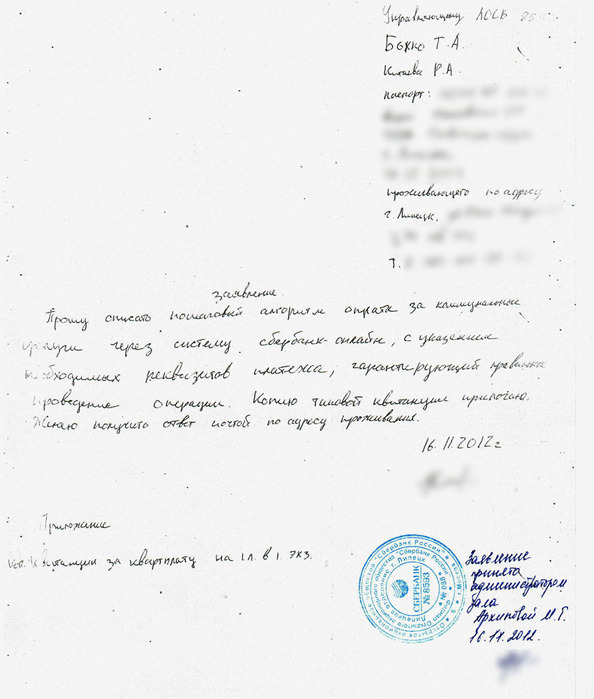 Управляющему ЛОСБ 85
Бокко Т.А.
Китаева Р.А.
паспорт:
проживающего по адресу
г. Липецк,
Т.
заявление.
Прошу списать пошаговый алгоритм оплаты за коммунальные
услуги через систему сбербанк-онлайн, с указанием
необходимых реквизитов платежа, гарантирующий правильное
проведение операции. Копию типовой квитанции прилагаю.
Желаю получить ответ почтой по адресу проживания.
16.11.2012г
Приложение
Коп. квитанции за квартплату на 1 л. в 1 экз.
СБЕРБАНК
№ 8593
Заявление
принета
администратором
зала
Архиповой М.Г.
16.11.2012.